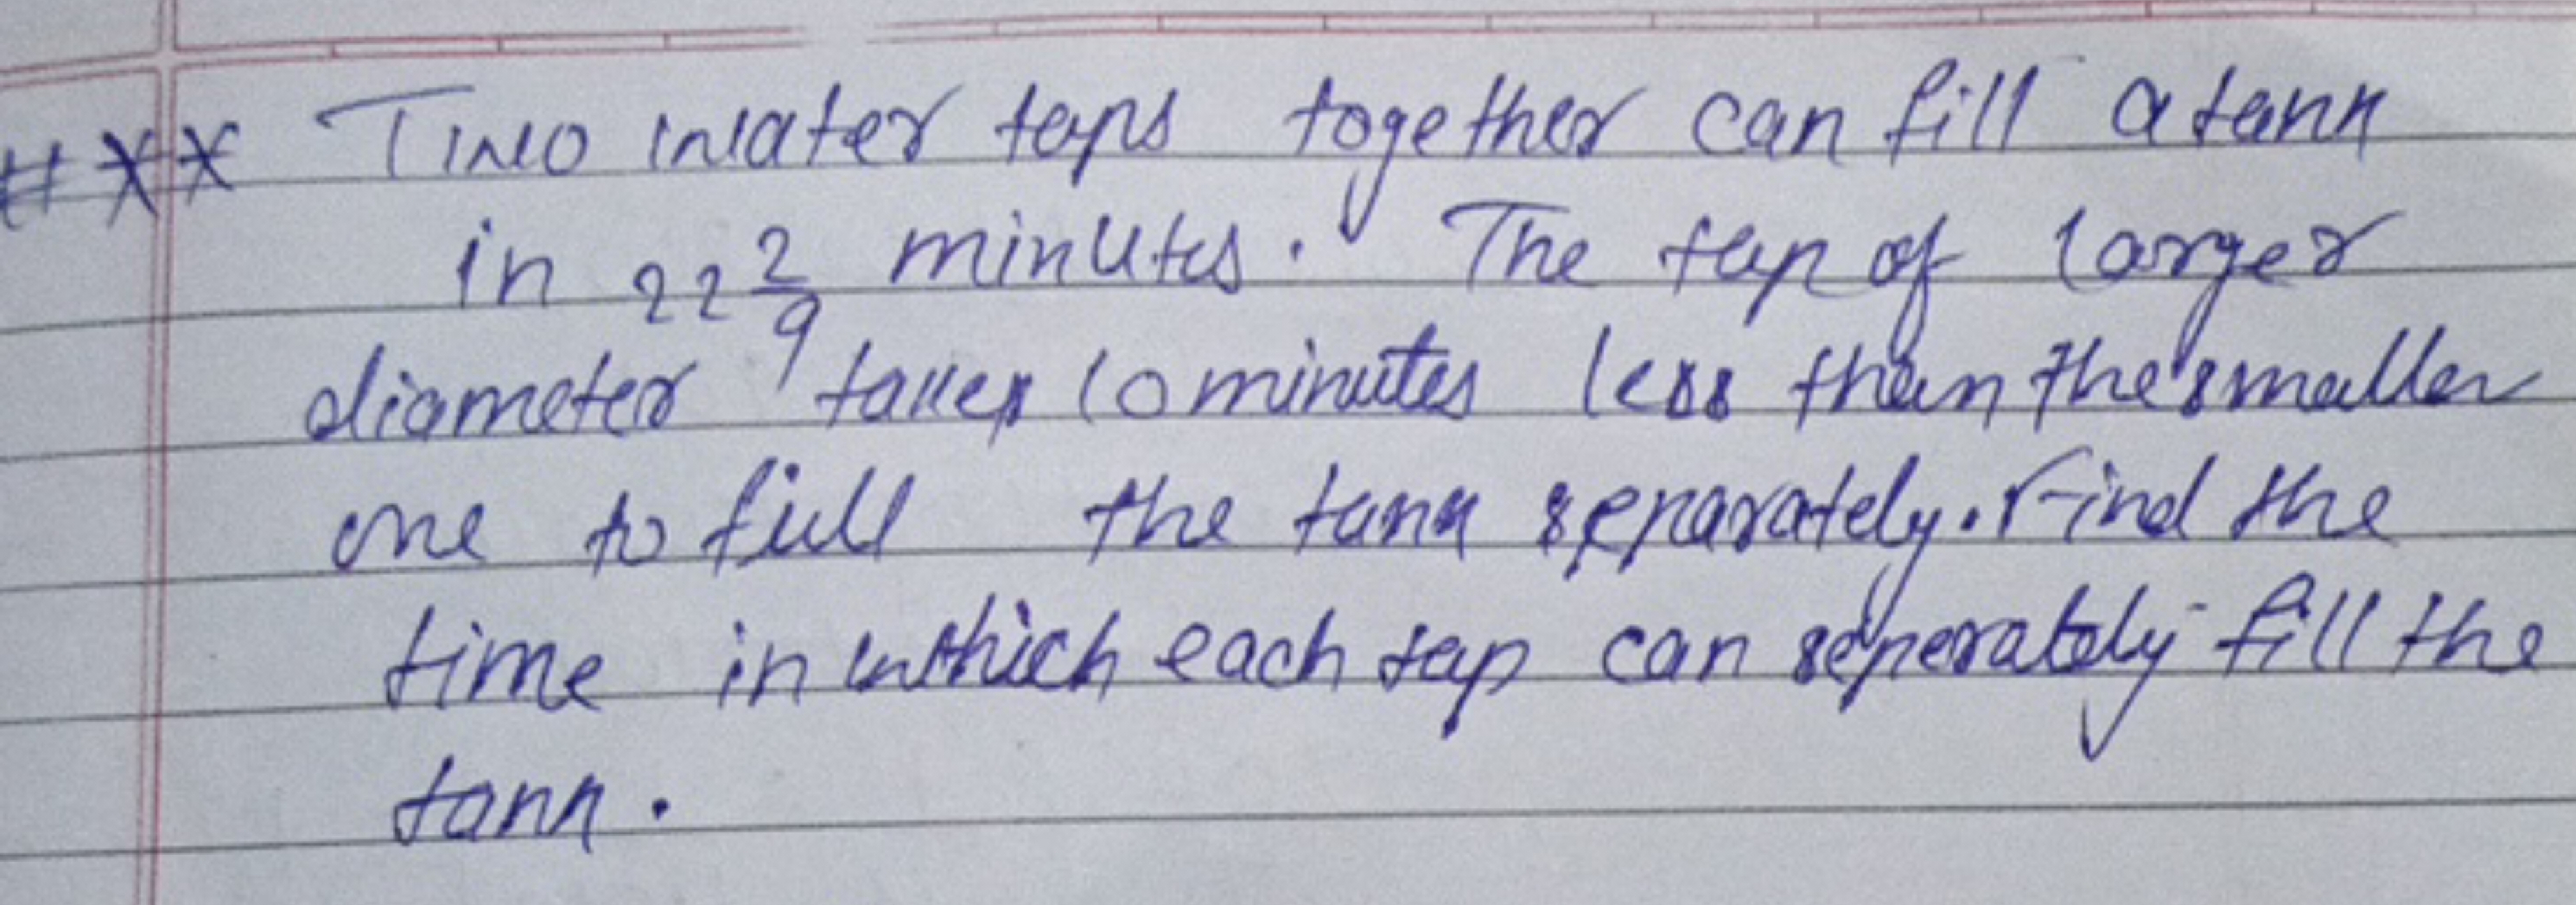 # ** Two water taps together can fill a tank
in 22 2/9 minutes. The tap of larger
diameter takes 10 minutes less than the smaller
one to fill the tank separately. Find the
time in which each tap can seperately fill the
tank.